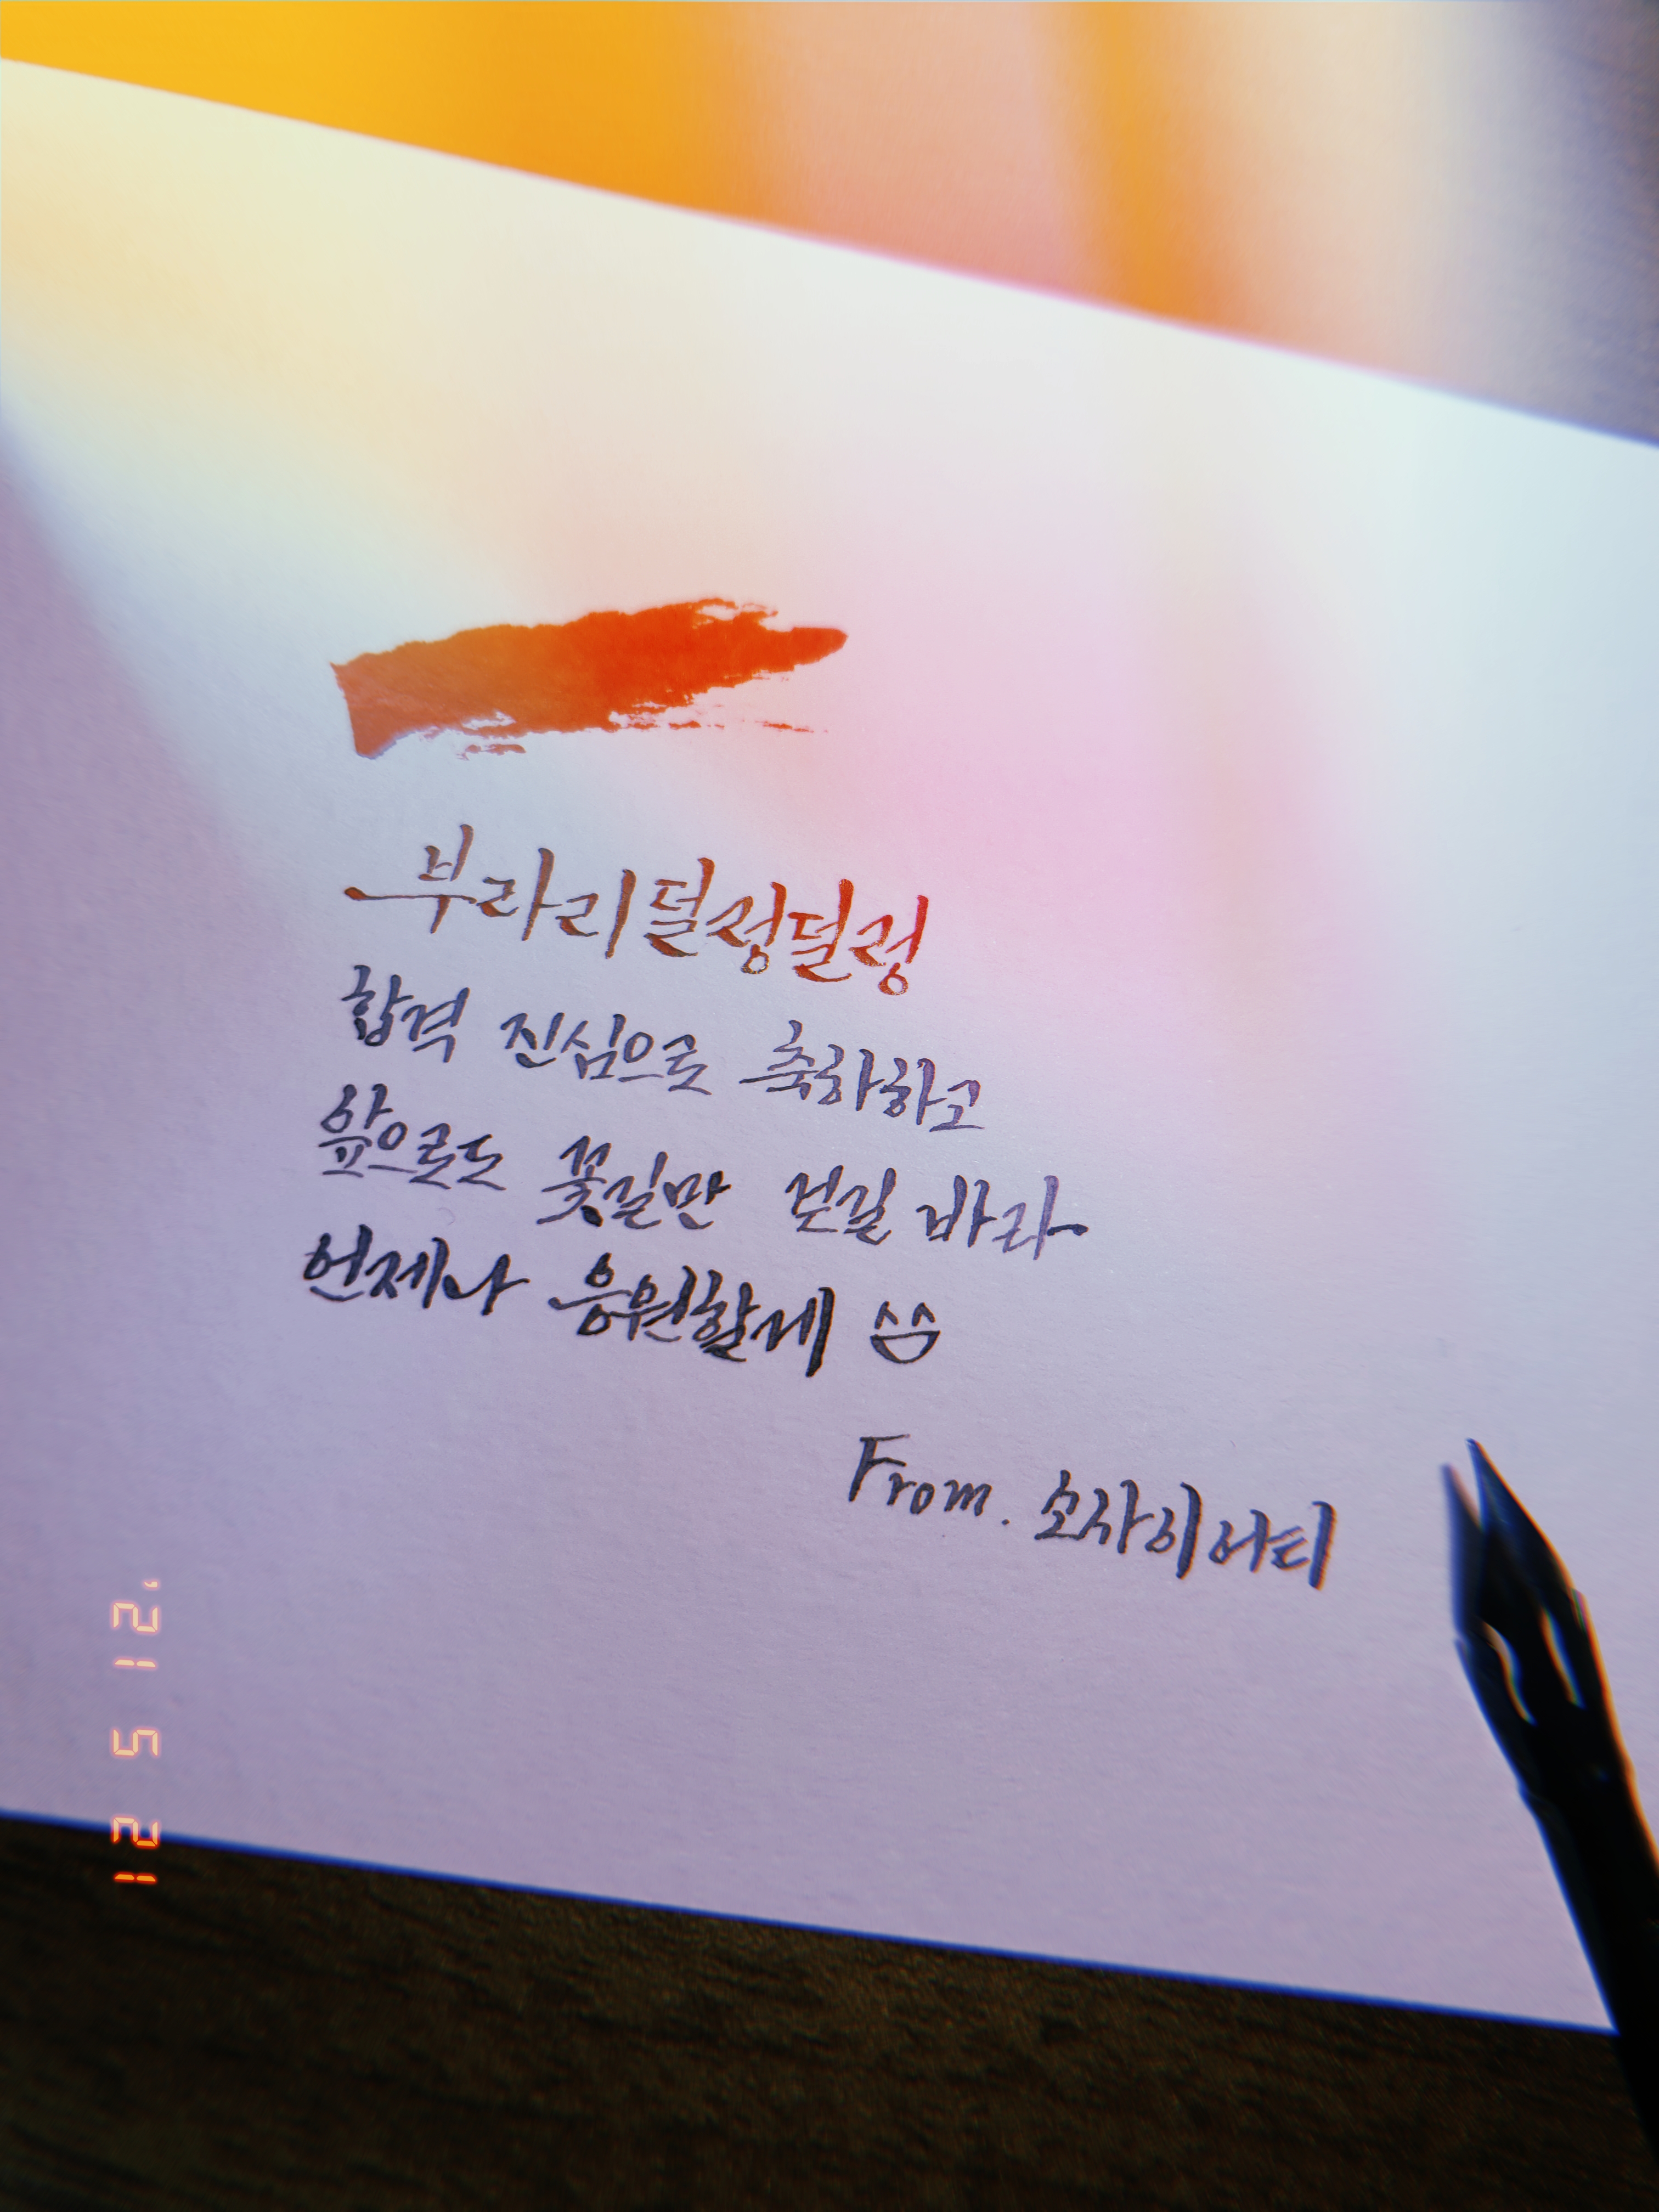 부라리덜렁덜렁
합격 진심으로 축하하고
앞으로도 꽃길만 걷길 바라
언제나 응원할게
From. 소사이어티
'21 5 21